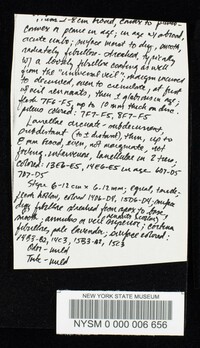 2-8 cm broad, convex to plano-
convex or plane in age, in age w/ abrood,
acute umbo, surface moist to dry, smooth,
radiately fibrillose-streaked, typically
w/ a loose fibrillose coating as veil
from the "universal veil", margin incurved
to decurved, even to crenulate, at first
w/ veil remnants, then ± in age;
flesh 7F6-F5, up to 10 mm thick on disc.
pileus colored: 7F7-F5, 8F7-F5
Lamellae sinuate-subdecurrent,
subdistant (to ± distant), thin, up to
8 mm broad, even, not marginate, not
lamellulae in 2 tiers;
colored: 13E6-E5, 14E6-E5 in age 6D7-D5
7D7-D5
Stipe 6-12 cm x 6-12 mm; equal,
flesh colored 14D6-D4, 15D6-D4;
fibrillose streaked from apex to base,
smooth; annulus or veil superior; cortina
fibrillose, pale lavender; surface colored:
14B3-B2, 14C3, 15B3-B2, 15C3
Odor-mild
Taste-mild
NEW YORK STATE MUSEUM
NYSM 0 000 006 656